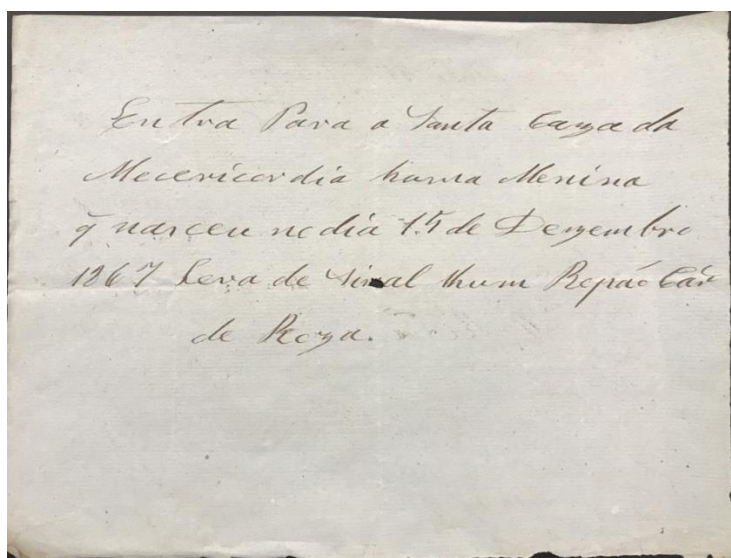 Entra Para a Santa Caza da
Mecericordia huma Menina
q̃ narceu no dia 15 de Dezembro
1867 Leva de Sinal hum Repáo Cár
de Roza.